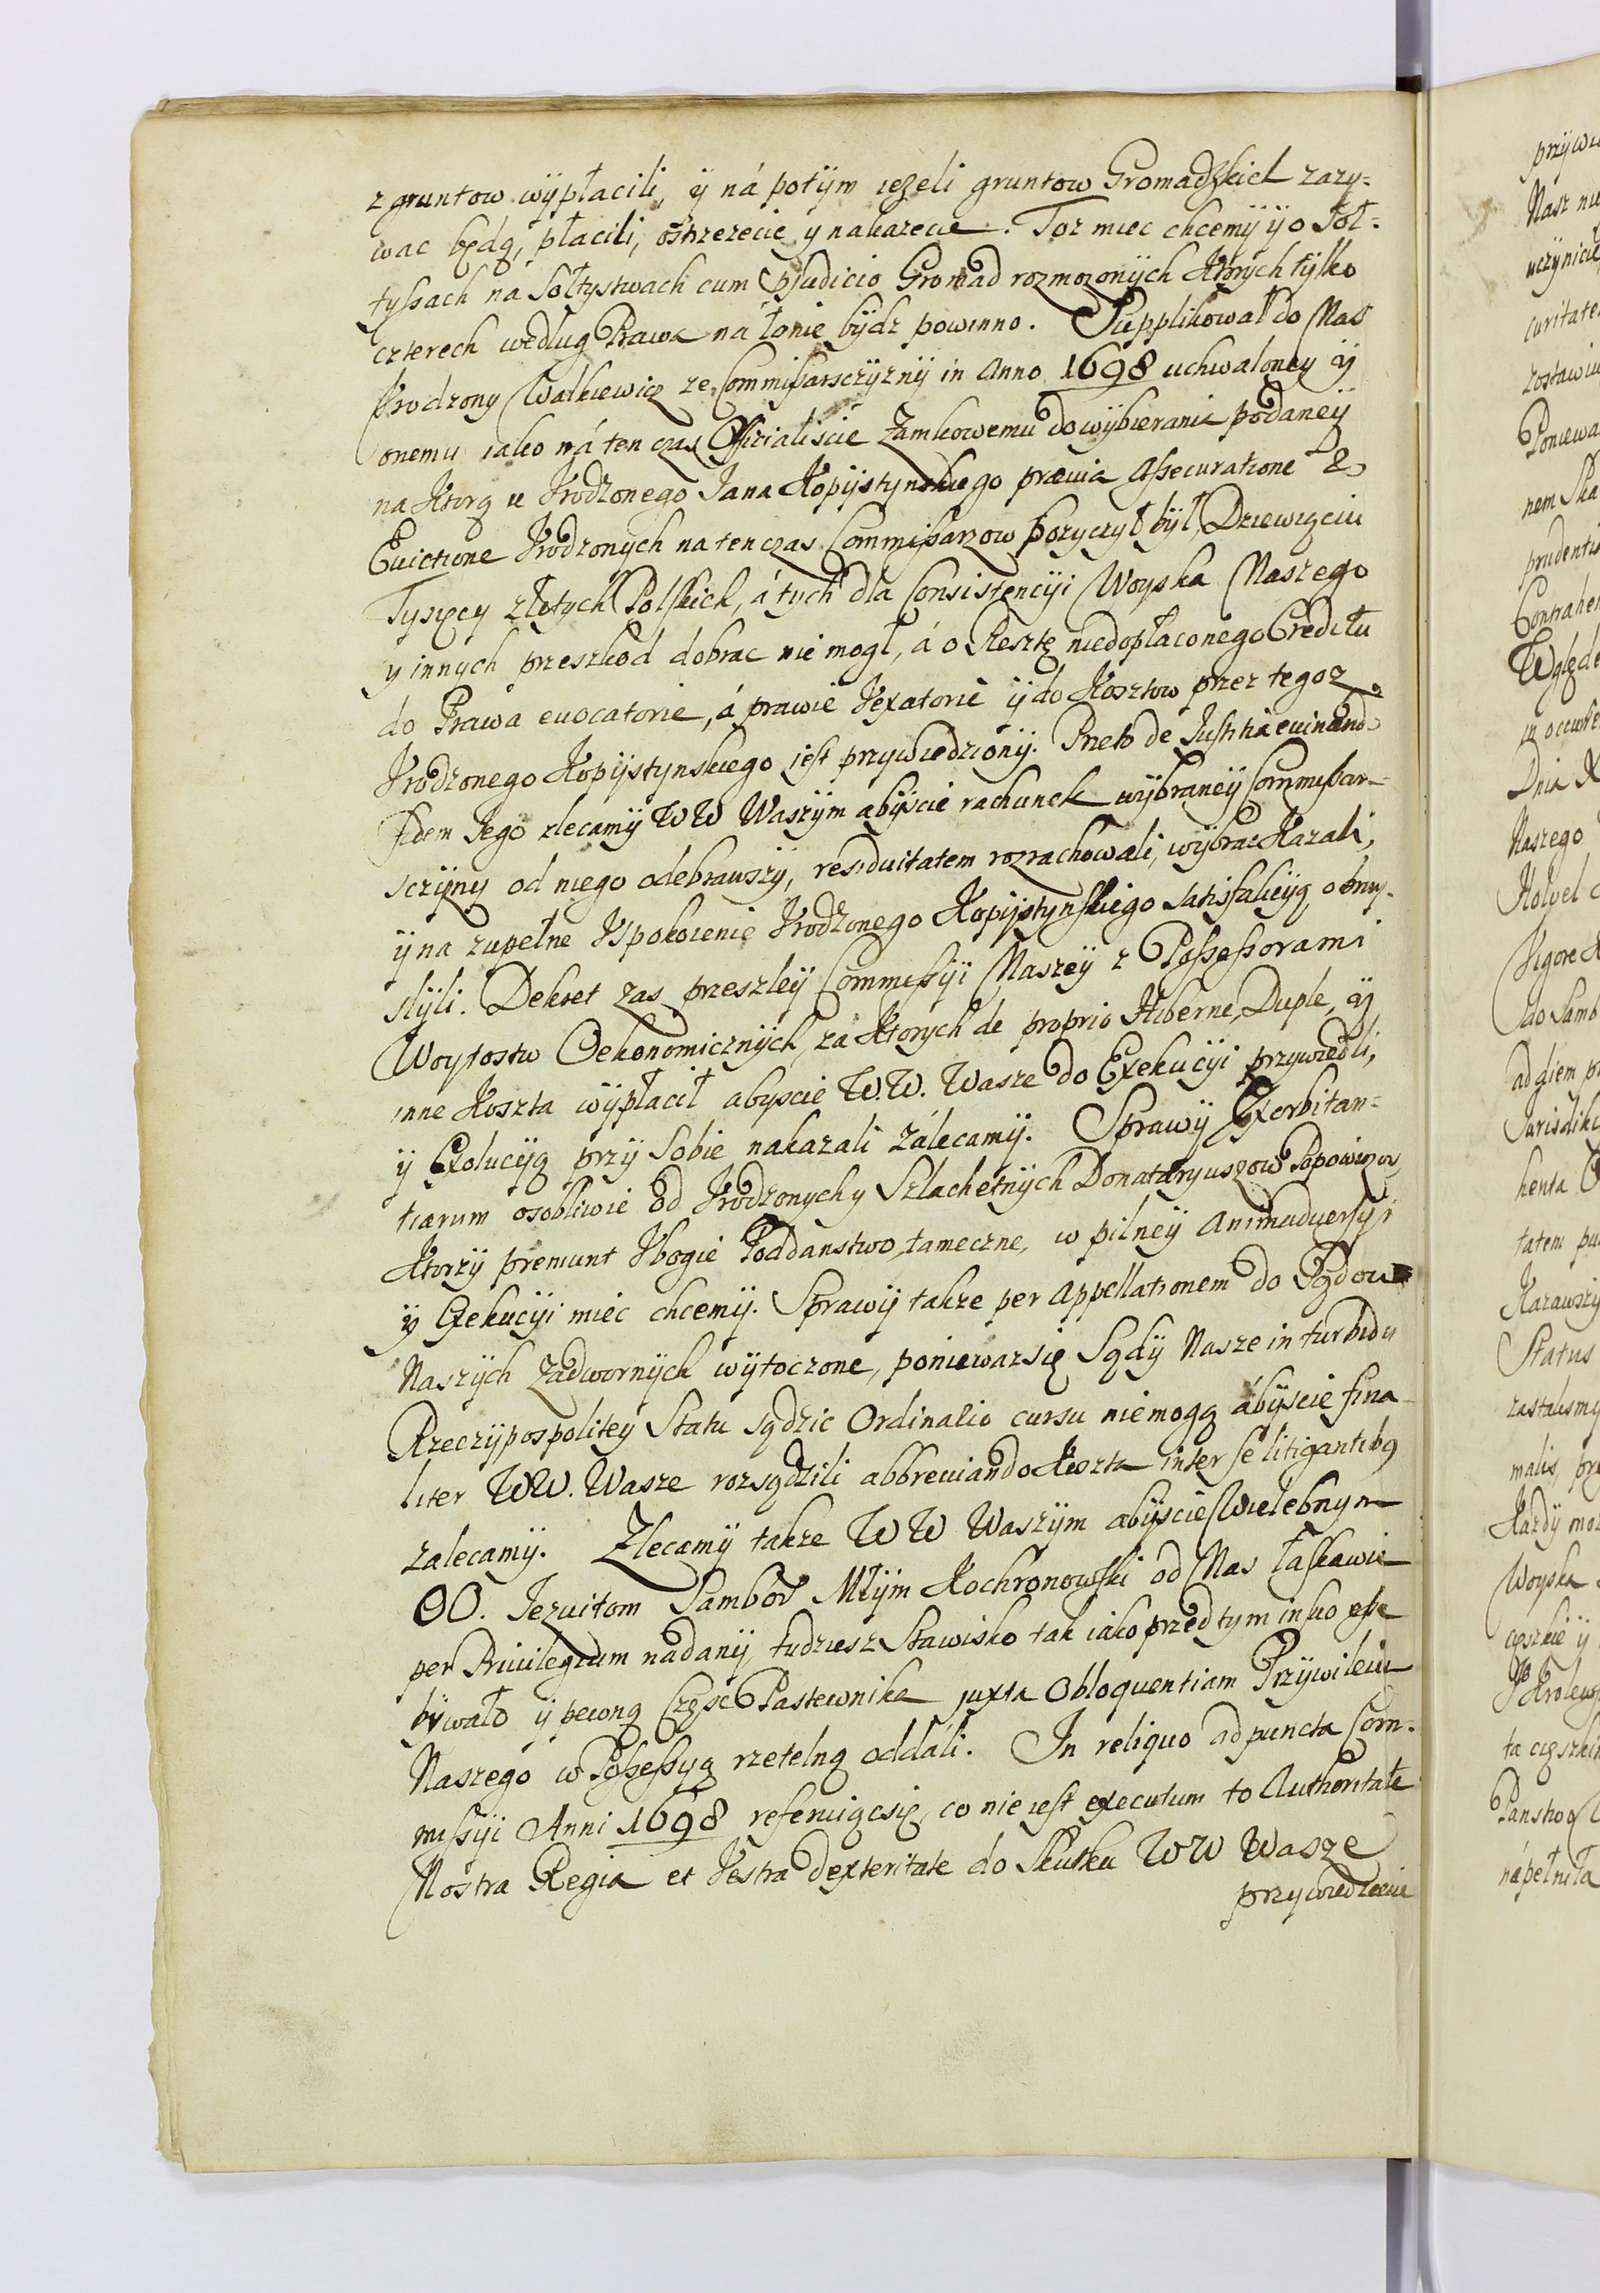 z gruntow wÿpłacili, ÿ ná potÿm ieżeli gruntow Gromadzkich zazy-
wac będą, płacili, ostrzezecie y nakazecie. Toz miec chcemÿ ÿ o Soł-
tyſsach na Sołtystwach cum pſudicio Gromad rozmozonÿch Ktorych tÿlko
czterech według Prawa na łonie bÿdz powinno. Supplikował do Nas
Vrodzony Walkiewicz ze Commiſsarsczÿznÿ in Anno 1698 uchwaloneÿ ÿ
onemu iako ná ten czas Officialiscie Zamkowemu do wÿbierania podaneÿ
na Ktorą u Vrodzonego Jana Kopijstynskiego prævia Aſsecuratione &
Euictione Vrodzonych na ten czas Commiſsarzow pozyczył bÿł, Dziewięciu
Tysięcy złotych Polſkich, á tych dla Consistencÿi Woyska Naszego
y innych preszkod dobrac nie mogł, á o Resztę niedopłaconego Creditu
do Prawa euocatorie, á prawie Vexatorie ÿ do Kosztow przez tegoz
Vrodzonego Kopijstynskiego iest przywiedzionÿ. Przeto de Justitia euinando
Fidem Jego zlecamÿ WW Waszÿm abÿscie rachunek wÿbraneÿ Commiſsar-
sczÿzny od niego odebrawszÿ, residuitatem rozrachowali, wÿbrac Kazali,
ÿ na zupełne Vspokoienie Vrodzonego Kopijstynſkiego satisfakcÿą obmy-
slÿli. Dekret zas preszleÿ Commiſsÿi Naszeÿ z Poſseſsorami
Woytostw Oekonomicznÿch, za Ktorych de proprio Hiberne, Duple, ÿ
inne Koszta wÿpłacił abyscie W.W. Wasze do Exekucÿi przywiedli,
ÿ Exolucÿą przÿ Sobie nakazali zálecamÿ. Sprawÿ Exorbitan-
tiarum osobliwie od Vrodzonych y Szlachetnÿch Donataryuszow Popowiczow
Ktorzÿ premunt Vbogie Poddanstwo tameczne, w pilneÿ Animaduersÿi
ÿ Exekucÿi miec chcemÿ. Sprawÿ takze per Appellationem do Sądow
Naszÿch Zadwornÿch wÿtoczone, poniewaz się Sądÿ Nasze in turbido
Rzeczÿpospolitey Statu sądzic Ordinario cursu niemogą ábÿscie fina-
liter WW. Wasze rozsądzili abbreuiando Koszta inter se litigantibq
zalecamÿ. Zlecamÿ takze WW Waszÿm abÿscie Wielebnym
OO. Jezuitom Sambor Młÿn Kochronowſki od Nas łaſkawie
per Priuilegium nadanÿ, tudziesz Stawisko tak iako przedtym in suo eſse
bÿwało ÿ pewną Część Pastewnika juxta Obloquentiam Przÿwileiu
Naszego w Poſseſsyą rzetelną oddáli. In reliquo ad puncta Com-
miſsÿi Anni 1698 referuiąc się, co nie iest executum to Authoritate
Nostra Regia et Vestra dexteritate do Skutku WW Wasze
przywiedziecie